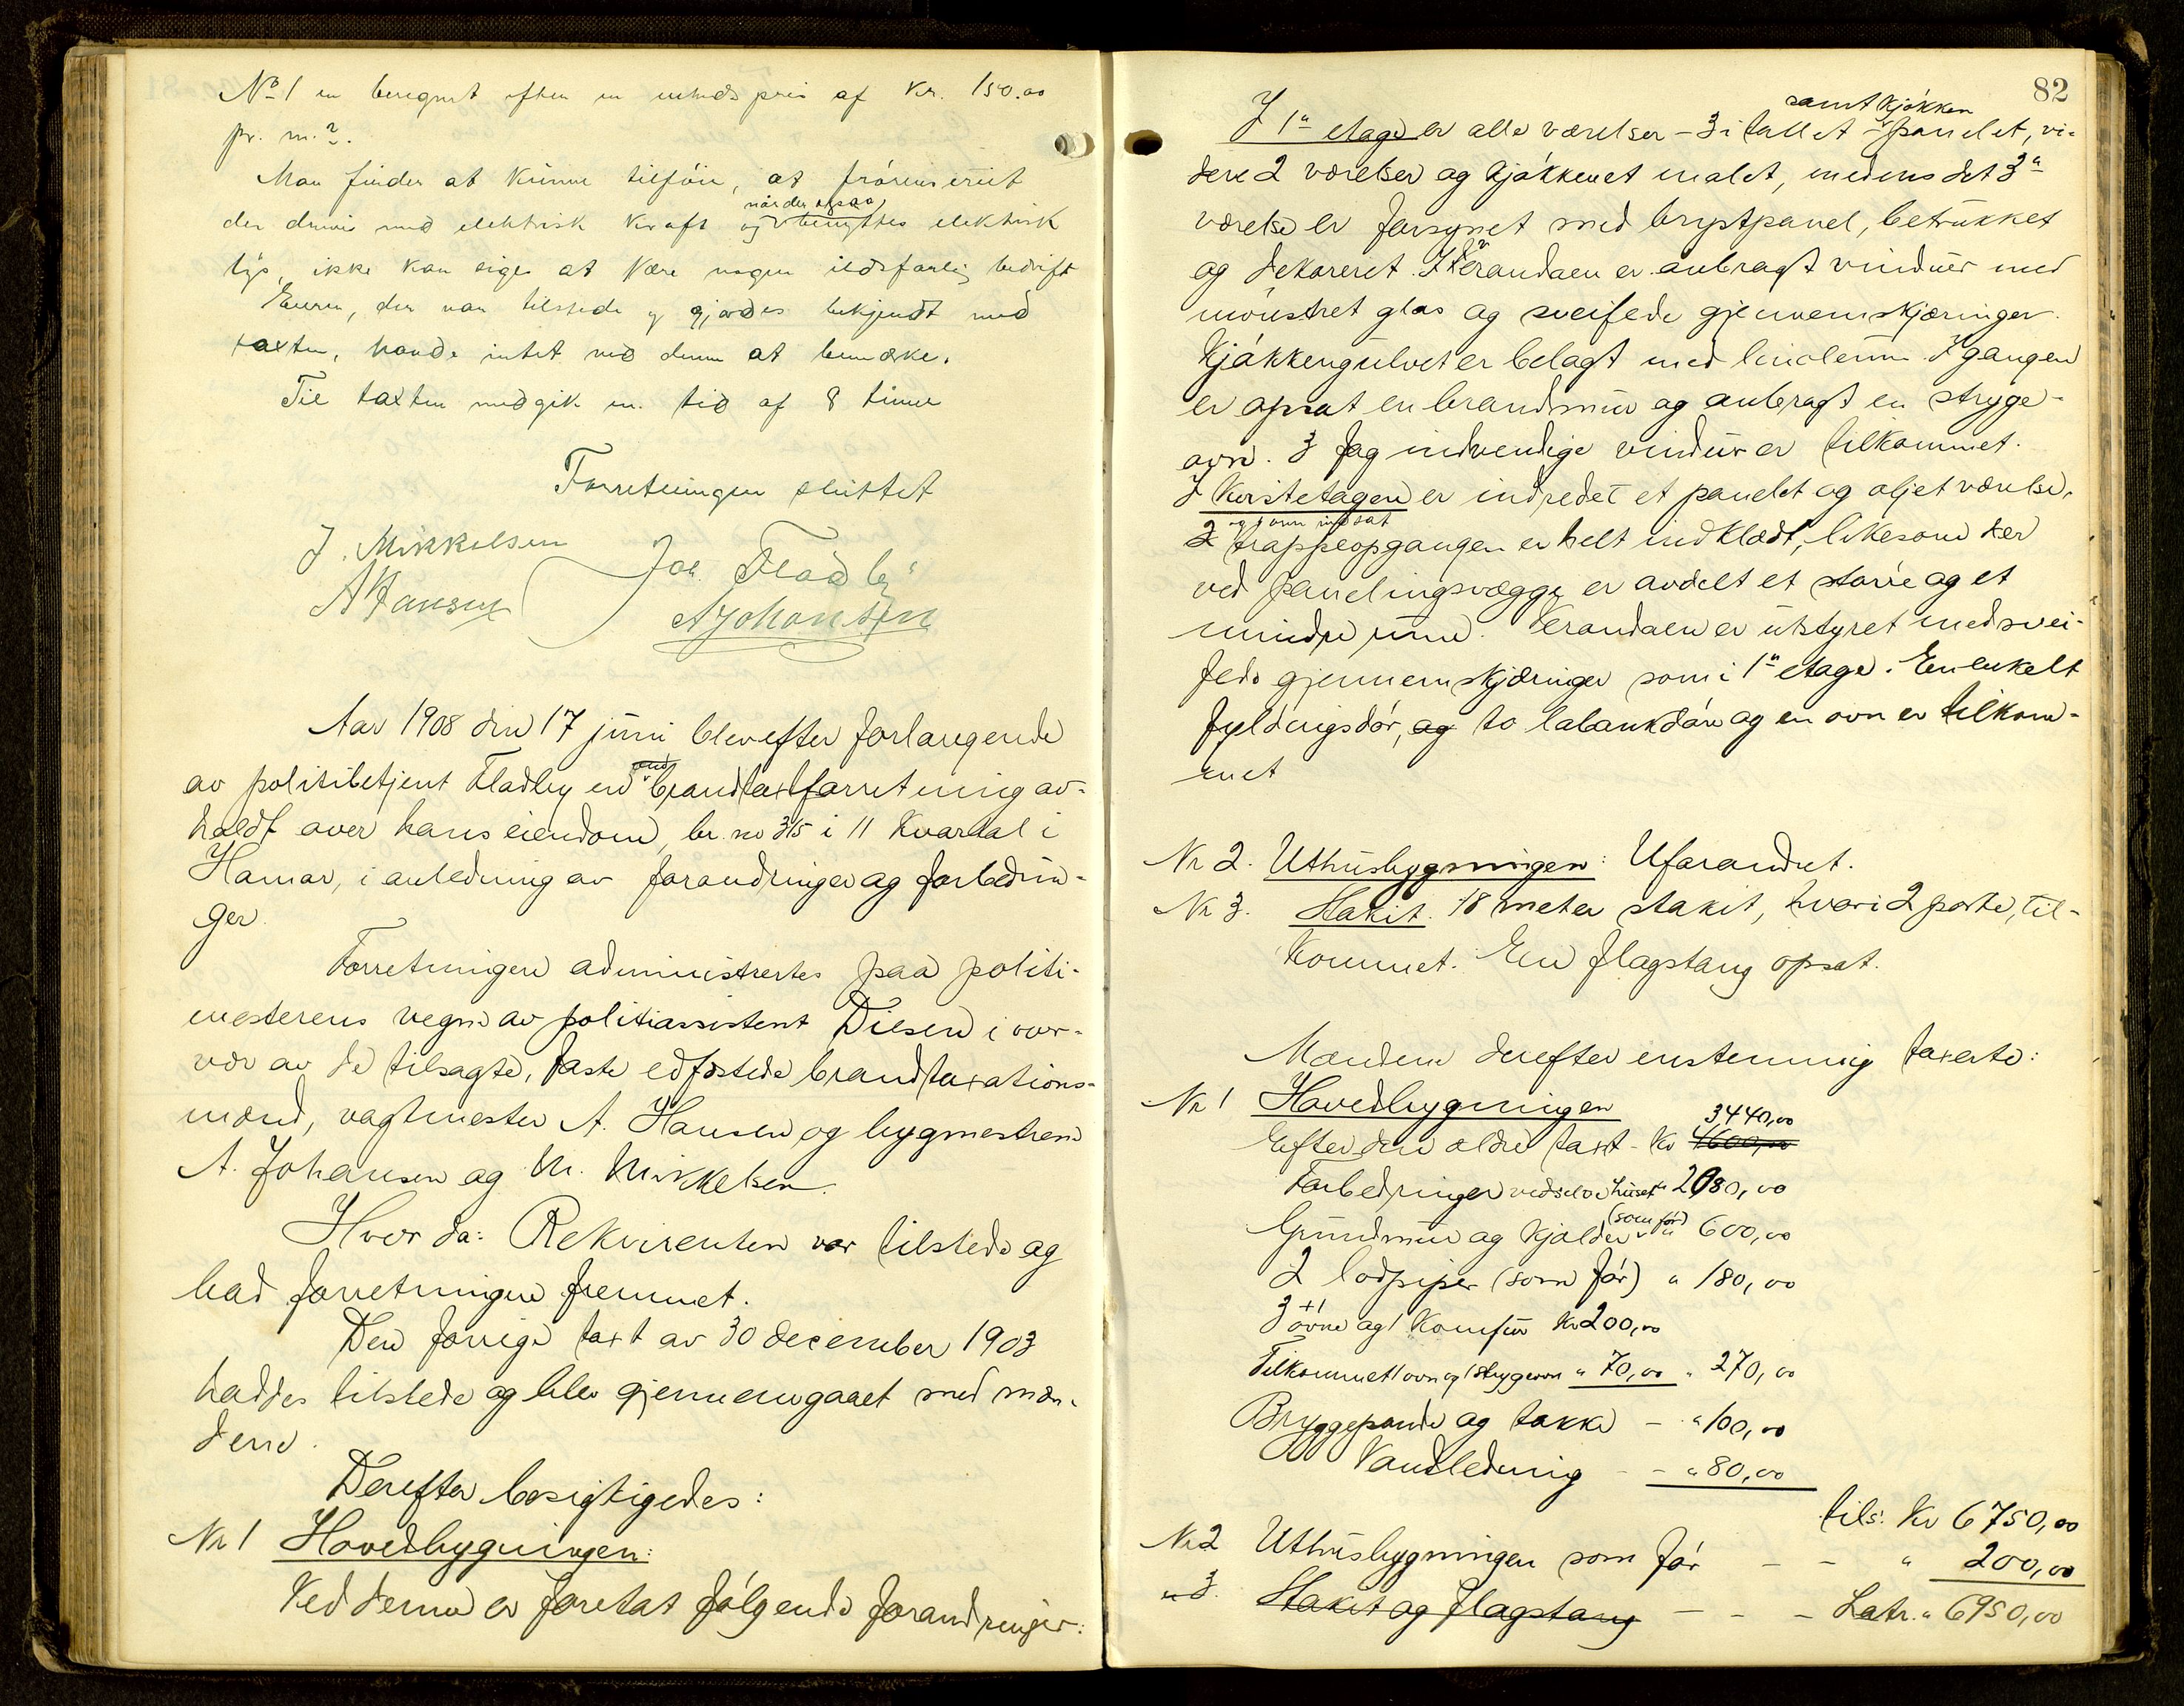 No 1 er beregnet efter en enheds pris af Kr. 150.00
pr. m.2.
Man finder at kunne tilföie, at frörenseriet
der drives med elektrisk kraft og når der ogsaa benyttes elektrisk
lys, ikke kan siges at være nogen ildsfarlig bedrift
Eieren, der var tilstede og gjordes bekjendt med
taxten, havde intet ved denne at bemærke.
Til taxten medgik en tid af 8 timer
Forretningen sluttet
J. Mikkelsen
Joh. Fladby
A Hansen
A Johansen
Aar 1908 den 17 juni blev efter forlangende
av politibetjent Fladby en brandtaxtforretning av-
holdt over hans eiendom, br. no 315 i 11 Kvartal i
Hamar, i anledning av forandringer og forbedrin-
ger.
Forretningen administrertes paa politi-
mesterens vegne av politiassistent Diesen i over-
vær av de tilsagte, faste edfæstede brandtaxations-
mænd, vagtmester A. Hansen og bygmestrene
A. Johansen og M. Mikkelsen.
Hvor da: Rekvirenten var tilstede og
bad forretningen fremmet.
Den forrige taxt av 30 december 1903
haddes tilstede og blev gjennemgaaet med mæn-
dene.
Derefter besigtigedes:
Nr 1 Hovedbygningen:
Ved denne er foretat følgende forandringer:
82
I 1ste etage er alle værelser – 3 i tallet – samt kjøkken panelet, vi-
dere 2 værelser og kjøkkenet malet, medens det 3die
værelse er forsynet med brystpanel, betrukket
og dekoreret. I verandaen er anbragt vinduer med
mønstret glas og sveifede gjennemskjæringer.
Kjøkkengulvet er belagt med linoleum. I gangen
er opsat en brandmur og anbragt en stryge-
ovn. 3 fag indvendige vinduer er tilkommet.
I Kvistetagen er indredet et panelet og oljet værelse,
og 1 ovn indsat
trappeopgangen er helt indklædt, likesom der
ved panelingsvægge er avdelt et større og et
mindre rum. Verandaen er utstyret med svei-
fede gjennemskjæringer som i 1ste etage. En enkelt
fyldingsdør, og to labankdøre og en ovn er tilkom-
met
Nr 2. Uthusbygningen: Uforandret.
Nr 3. Stakit. 18 meter stakit, hvori 2 porte, til-
kommet. En flagstang opsat.
Mændene derefter enstemmig taxerte:
Nr 1 Hovedbygningen
3,440,00
Efter den ældre taxt – Kr 4600,00
Forbedringer ved selve huset " 2080,00
Grundmur og kjælder (som før) " 600,00
2 lodpiper (som før) " 180,00
3 + 1 ovne og 1 Komfur Kr 200,00
Tilkommet 1 ovn og 1 strygeovn " 70,00 " 270,00
Bryggepande og takke – " 100,00
Vandledning – – " 80,00
tils. Kr 6750,00
Nr 2 Uthusbygningen som før – – " 200,00
" 3. Stakit og flagstang – – – Latr. " 6950,00